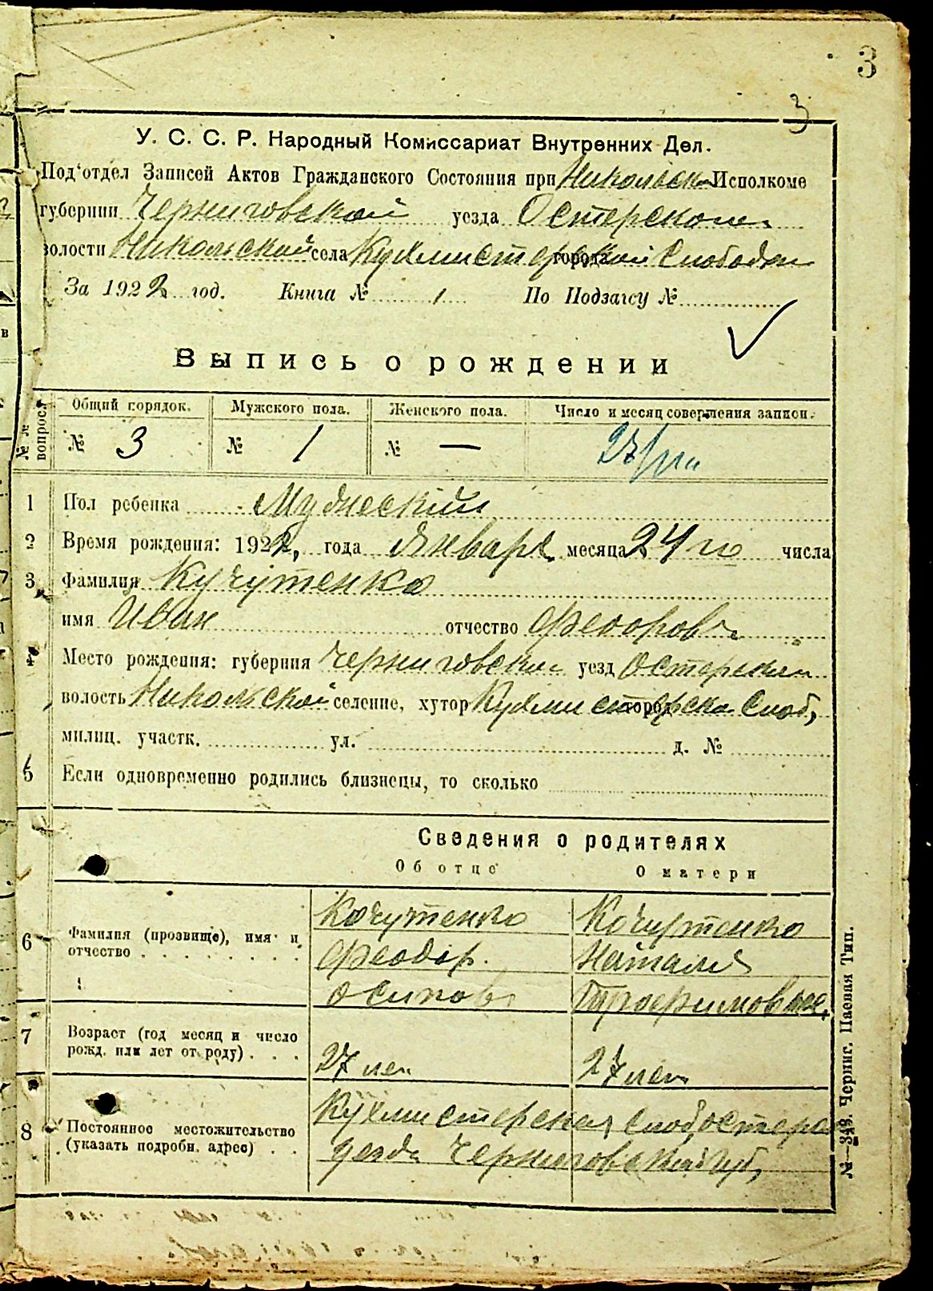 3
3
У. С. С. Р. Народный Комиссариат Внутренних Дел.
Под‘отдел Записей Актов Гражданского Состояния при Никольск Исполкоме
губернии Черниговской уезда Остерского
волости Никольской села Кухмистерской Слободы
За 1922 год. Книга № 1 По Подзагсу №
Выпись о рождении
№№ вопрос. Общий порядок. Мужского пола. Женского пола. Число и месяц совершения записи.
№ 3 № 1 № —
1 Пол ребенка Мужеский
2 Время рождения: 1922, года Января месяца 24 го числа
3 Фамилия Кучутенко
имя Иван отчество Феодоров
4 Место рождения: губерния Черниговской уезд Остерский
волость Никольской селение, хутор Кухмистерска Слоб,
милиц. участк. ул. д. №
5 Если одновременно родились близнецы, то сколько
Сведения о родителях
Об отце О матери
6 Фамилия (прозвище), имя и отчество Кочутенко Кочутенко
Феодор. Наталия
Осипов Трофимовна,
7 Возраст (год месяц и число рожд. или лет от роду) 27 лет 27 лет
8 Постоянное местожительство (указать подробн. адрес) Кухмистерская слоб Остерс
уезда Черниговской губ,
№—343. Черниг. Паевая Тип.